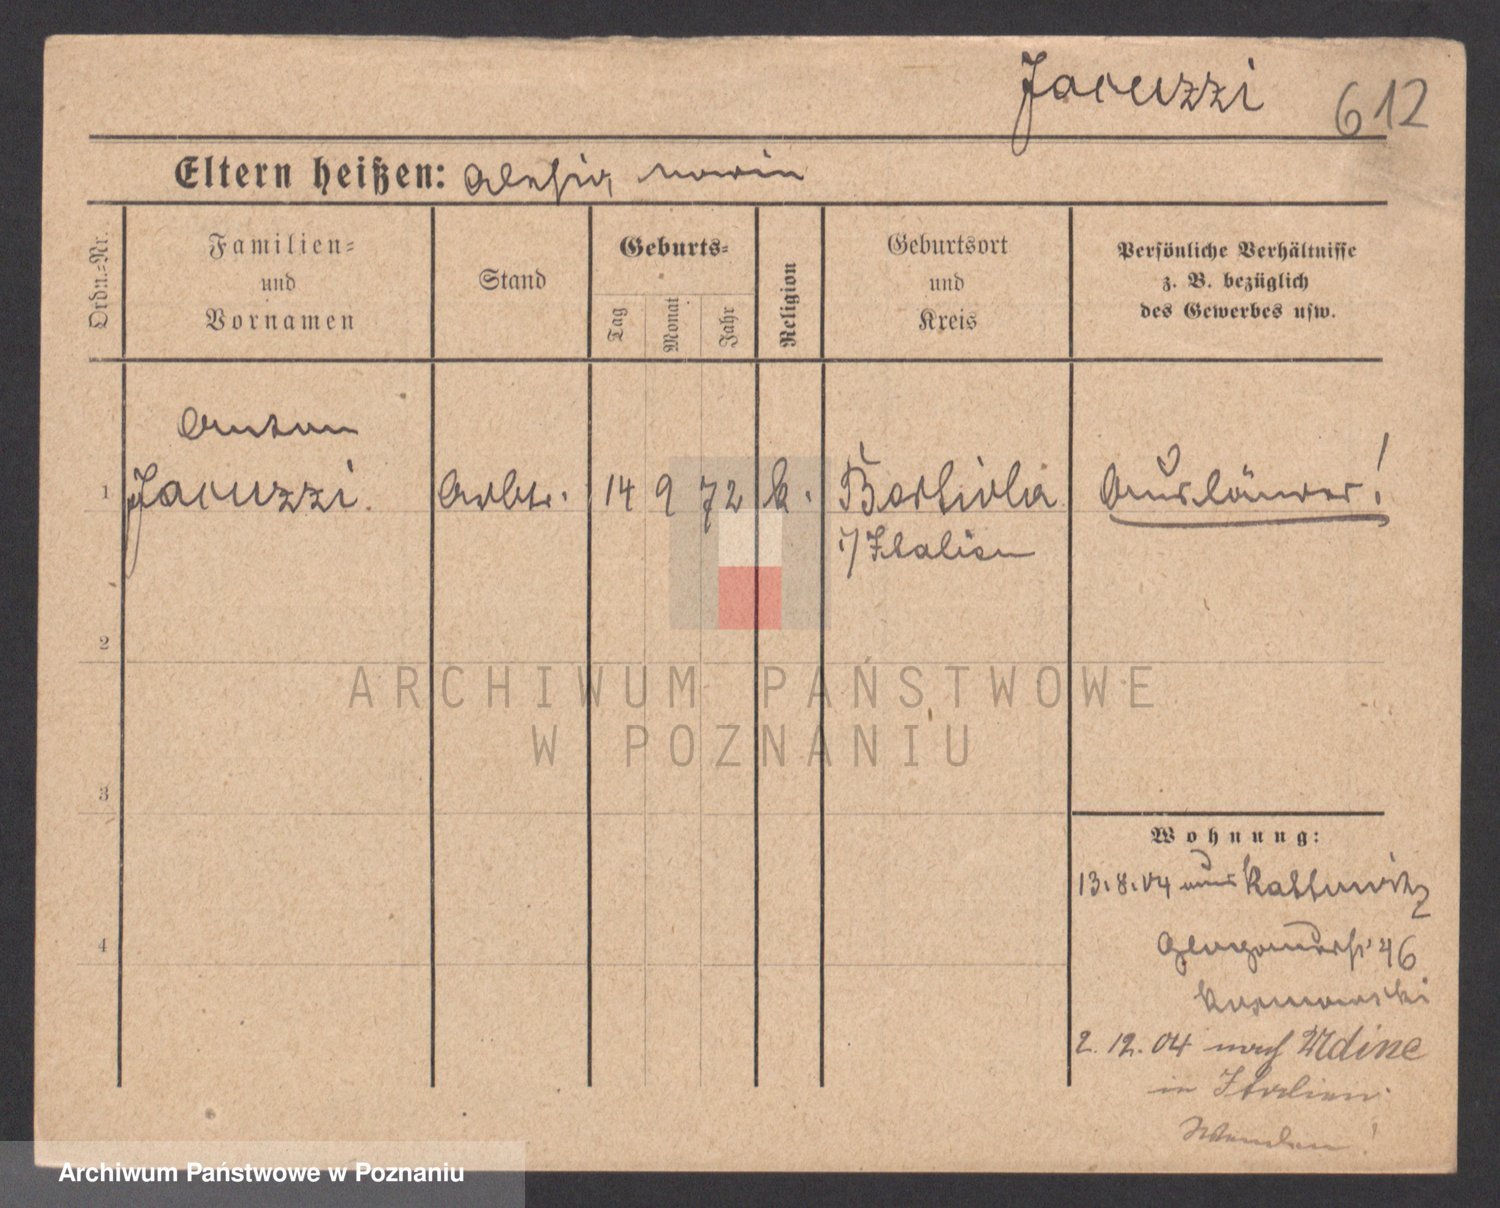 Jacuzzi 612
Eltern heißen: Maria
Ordn.=Nr.
Familien=
und
Vornamen
Stand
Geburts=
Tag
Monat
Jahr
Religion
Geburtsort
und
Kreis
Persönliche Verhältnisse
z. B. bezüglich
des Gewerbes usw.
Anton
1 Jacuzzi. Arbtr. 14 9 72 k. Ausländer!
i/Italien
2
ARCHIWUM PAŃSTWOWE
W POZNANIU
3
Wohnung:
13.8.04 aus Kattowitz
4
Glogauerstr 46
2.12.04 nach Udine
in Italien.
Wenden!
Archiwum Państwowe w Poznaniu